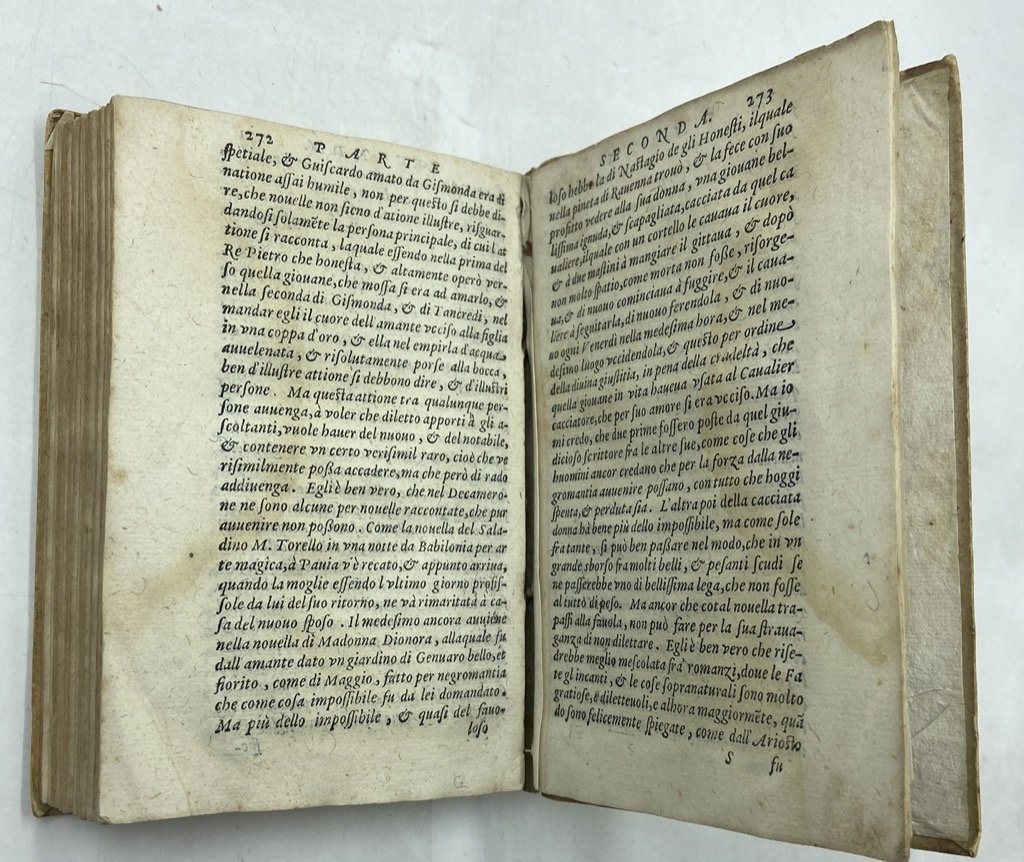 272 PARTE
ſpetiale, & Guiſcardo amato da Giſmonda era di
natione aſſai humile, non per queſto ſi debbe di-
re, che nouelle non ſieno d'atione illuſtre, riſguar-
dandoſi ſolamẽte la perſona principale, di cui l'at
tione ſi racconta, laquale eſſendo nella prima del
Re Pietro che honeſta, & altamente operò ver-
ſo quella giouane, che moſſa ſi era ad amarlo, &
nella ſeconda di Giſmonda, & di Tancredi, nel
mandar egli il cuore dell'amante vcciſo alla figlia
in vna coppa d'oro, & ella nel empirla d'acqua
auuelenata, & riſolutamente porſe alla bocca,
ben d'illuſtre attione ſi debbono dire, & d'illuſtri
perſone. Ma queſta attione tra qualunque per-
ſone auuenga, à voler che diletto apporti à gli a-
ſcoltanti, vuole hauer del nuouo, & del notabile,
& contenere vn certo veriſimil raro, cioè che ve
riſimilmente poſſa accadere, ma che però di rado
addiuenga. Egli è ben vero, che nel Decamero-
ne ne ſono alcune per nouelle raccontate, che pur
auuenire non poſſono. Come la nouella del Sala-
dino M. Torello in vna notte da Babilonia per ar
te magica, à Pauia v'è recato, & appunto arriua,
quando la moglie eſſendo l vltimo giorno profiſ-
ſole da lui del ſuo ritorno, ne và rimaritata à ca-
ſa del nuouo ſpoſo. Il medeſimo ancora auuiene
nella nouella di Madonna Dionora, allaquale fu
dall'amante dato vn giardino di Genuaro bello, et
fiorito, come di Maggio, fatto per negromantia
che come coſa impoſſibile fu da lei domandato.
Ma più dello impoſſibile, & quaſi del fauo-
loſo
SECONDA. 273
loſo hebbe la di Naſtagio de gli Honeſti, ilquale
nella pineta di Rauenna trouò, & la fece con ſuo
profitto vedere alla ſua donna, vna giouane bel-
liſſima ignuda, & ſcapagliata, cacciata da quel ca
ualiere, ilquale con un cortello le cauaua il cuore,
& à due maſtini à mangiare il gittaua, & dopò
non molto ſpatio, come morta non foſſe, riſorge-
ua, & di nuouo cominciaua à fuggire, & il caua-
liere à ſeguitarla, di nuouo ferendola, & di nuo-
uo ogni Venerdì nella medeſima hora, & nel me-
deſimo luogo vccidendola, & queſto per ordine
della diuina giuſtitia, in pena della crudeltà, che
quella giouane in vita haueua vſata al Caualier
cacciatore, che per ſuo amore ſi era vcciſo. Ma io
mi credo, che due prime foſſero poſte da quel giu-
dicioso ſcrittore fra le altre ſue, come coſe che gli
huomini ancor credano che per la forza dalla ne-
gromantia auuenire poſſano, con tutto che hoggi
ſpenta, & perduta ſia. L'altra poi della cacciata
donna hà bene più dello impoſſibile, ma come ſole
fra tante, ſi può ben paſſare nel modo, che in vn
grande sborſo fra molti belli, & peſanti ſcudi ſe
ne paſſerebbe vno di belliſſima lega, che non foſſe
al tuttò di peſo. Ma ancor che cotal nouella tra-
paſſi alla fauola, non può fare per la ſua ſtraua-
ganza di non dilettare. Egli è ben vero che riſe-
drebbe meglio meſcolata frà romanzi, doue le Fa
te gl incanti, & le coſe ſopranaturali ſono molto
gratioſe, e diletteuoli, e alhora maggiormẽte, quã
do ſono felicemente ſpiegate, come dall'Arioſto
S fu